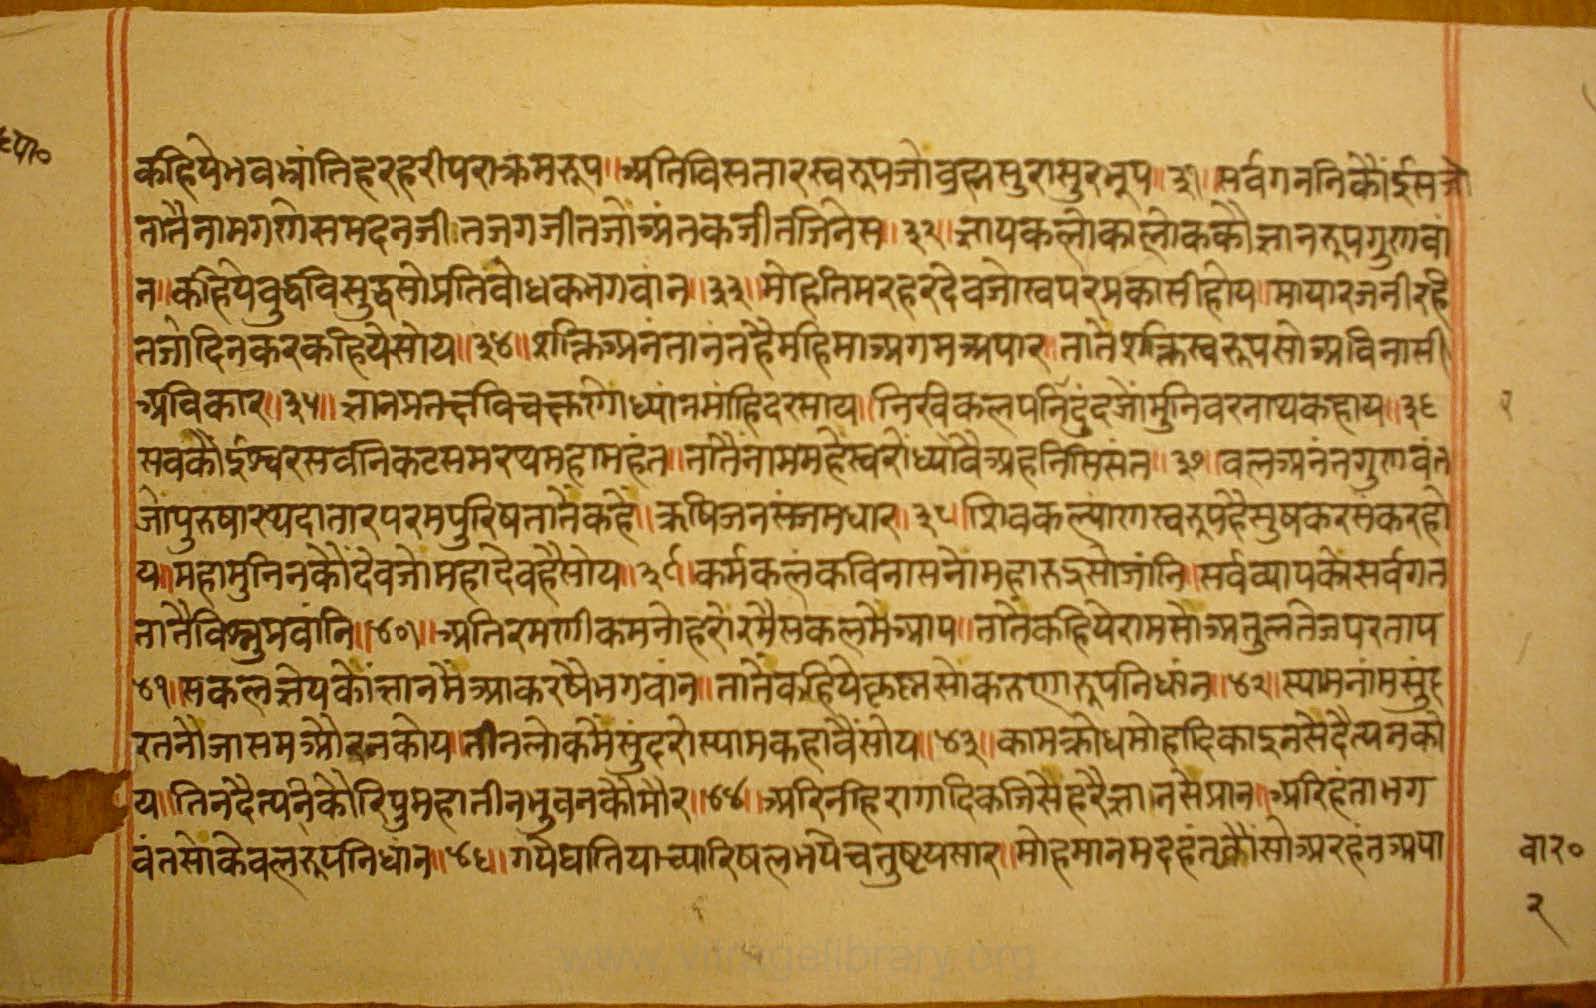 ध्या०
कहियेभवभ्रांतिहरहरीपराक्रमरूप॥अतिविसतारस्वरूपजोब्रह्मसुरासुरभूप॥३१॥सर्वगननिकौंईसजो
तातैनामगणेसमदनजीतजगजीतजोअंतकजीतजिनेस॥३२॥ज्ञायकलोकालोककौज्ञानरूपगुणवां
न॥कहियेबुद्धविसुद्धसोप्रतिबोधकभगवांन॥३३॥मोहतिमरहरदेवजोस्वपरप्रकासीहोय॥मायारजनीरहि
तजोदिनकरकहियेसोय॥३४॥शक्तिअनंतानंतहैमहिमाअगमअपार॥तातेशक्तिस्वरूपसोअविनासी
अविकार॥३५॥ध्यांनमांहिदरसाय॥निरविकलपनिर्द्वंदजोमुनिवरनाथकहाय॥३६
सबकौईश्वरसर्वनिकटसमरथमहामहंत॥तातैंनाममहेस्वरोध्यावैअहनिसिसंत॥३७॥बलअनंतगुणवंत
जोपुरुषारथदातारपरमपुरिषतातैंकहे॥ऋषिजनसंजमधार॥३८॥शिवकल्यांणस्वरूपहैसुषकरसंकरहो
य॥महामुनिनकौदेवजोमहादेवहैसोय॥३९॥कर्मकलंकविनासनोमहारुद्रसोजांनि॥सर्वव्यापकोसर्वगत
तातैविस्नुप्रवांनि॥४०॥अतिरमणीकमनोहरोरमैसकलमैआप॥तातेकहियेरामसोअतुलतेजपरताप
४१॥सकलज्ञेयकौंज्ञानमैआकरषैभगवांन॥तातेंकहियेकृष्णसोकरुणारूपनिधांन॥४२॥स्यामनांमसुंद
रतनौजासमऔरनकोय॥तीनलोकमेंसुंदरोस्यामकहावैंसोय॥४३॥कामक्रोधमोहादिकाइनसेदैत्यनको
य॥तिनदैत्यनिकौरिपुमहातीनभुवनकौमौर॥४४॥अरिनहिरागादिकजिसैहरैज्ञाननसेप्रान॥अरिहंताभग
वंतसोकेवलरूपनिधांन॥४५॥गयेघातियाच्यारिषलभयेचतुष्टयसार॥मोहमानमदहंतकौंसोअरहंतअपा
बार०
२